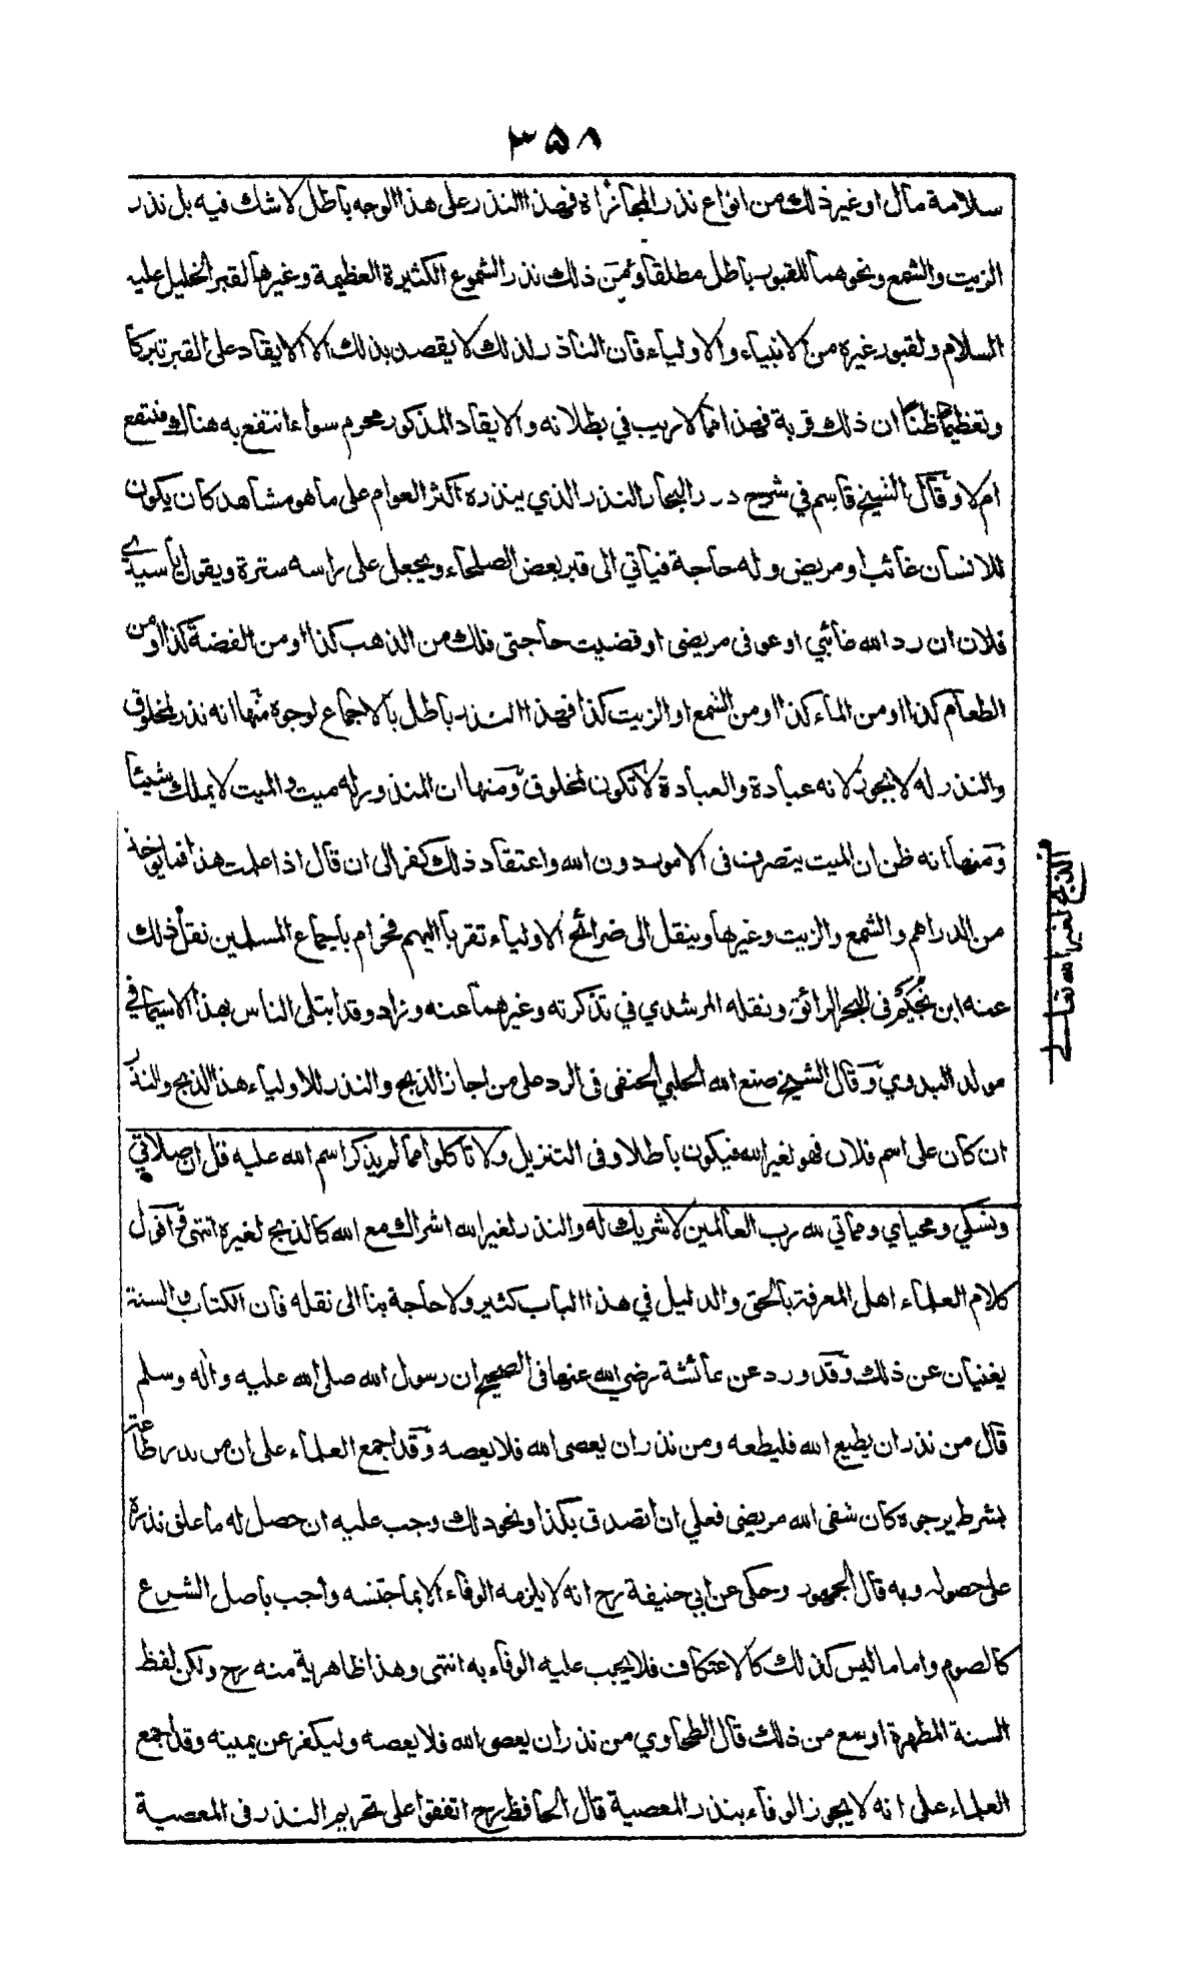 ٣٥٨
سلامة مال او غير ذلك من انواع نذر المجازاة فهذا النذر على هذا الوجه باطل لا شك فيه بل نذر
الزيت والشمع ونحوهما للقبور باطل مطلقا ومن ذلك نذر الشموع الكثيرة العظيمة وغيرها لقبر الخليل عليه
السلام ولقبور غيره من الانبياء والاولياء فان الناذر لذلك لا يقصد بذلك الا الايقاد على القبر تبركا
وتعظيما ظنا ان ذلك قربة فهذا مما لا ريب في بطلانه والايقاد المذكور محرم سواء انتفع به هناك منتفع
ام لا وقال الشيخ قاسم في شرح درر البحار النذر الذي ينذره اكثر العوام على ما هو مشاهد كان يكون
للانسان غائب او مريض وله حاجة فياتي الى قبر بعض الصلحاء ويجعل على راسه سترة ويقول يا سيدي
فلان ان رد الله غائبي او عوفى مريضى او قضيت حاجتى فلك من الذهب كذا او من الفضة كذا او من
الطعام كذا او من الماء كذا او من الشمع او الزيت كذا فهذا النذر باطل بالاجماع لوجوه منها انه نذر لمخلوق
والنذر له لا يجوز لانه عبادة والعبادة لا تكون لمخلوق ومنها ان المنذور له ميت والميت لا يملك شيئا
ومنها انه ظن ان الميت يتصرف فى الامور دون الله واعتقاد ذلك كفر الى ان قال اذا علمت هذا فما يوخذ
من الدراهم والشمع والزيت وغيرها وينقل الى ضرائح الاولياء تقربا اليهم فحرام باجماع المسلمين نقل ذلك
عنه ابن نجيم فى البحر الرائق ونقله المرشدي في تذكرته وغيرهما عنه وزاد وقد ابتلى الناس بهذا لاسيما في
مولد البدوي وقال الشيخ صنع الله الحلبي الحنفى فى الرد على من اجاز الذبح والنذر للاولياء هذا الذبح والنذر
ان كان على اسم فلان فهو لغير الله فيكون باطلا وفى التنزيل ولا تاكلوا مما لم يذكر اسم الله عليه قل ان صلاتي
ونسكي ومحياي ومماتي لله رب العالمين لا شريك له والنذر لغير الله اشراك مع الله كالذبح لغيره انتهى اقول
كلام العلماء اهل المعرفة بالحق والدليل في هذا الباب كثير ولا حاجة بنا الى نقله فان الكتاب والسنة
يغنيان عن ذلك وقد ورد عن عائشة رضي الله عنها فى الصحيح ان رسول الله صلى الله عليه واله وسلم
قال من نذر ان يطيع الله فليطعه ومن نذر ان يعصى الله فلا يعصه وقد اجمع العلماء على ان من نذر طاعة
بشرط يرجوه كان شفى الله مريضى فعلي ان اتصدق بكذا ونحو ذلك وجب عليه ان حصل له ما علق نذره
على حصوله وبه قال الجمهور وحكى عن ابي حنيفة رح انه لا يلزمه الوفاء الا بما جنسه واجب باصل الشرع
كالصوم واما ما ليس كذلك كالاعتكاف فلا يجب عليه الوفاء به انتهى وهذا ظاهرية منه رح ولكن لفظ
السنة المطهرة اوسع من ذلك قال الطحاوي من نذر ان يعصى الله فلا يعصه وليكفر عن يمينه وقد اجمع
العلماء على انه لا يجوز الوفاء بنذر المعصية قال الحافظ رح اتفقوا على تحريم النذر فى المعصية
الذبح لغير الله تعالى